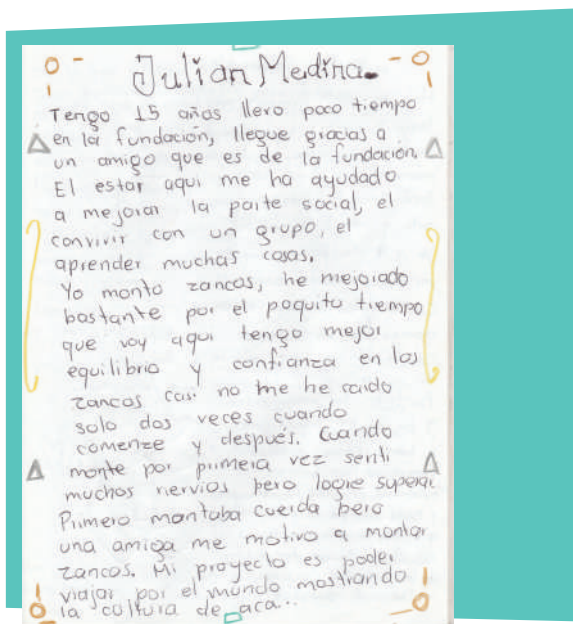 Julian Medina.
Tengo 15 años llevo poco tiempo
en la fundación, llegue gracias a
un amigo que es de la fundación.
El estar aqui me ha ayudado
a mejorar la parte social, el
convivir con un grupo, el
aprender muchas cosas.
Yo monto zancos, he mejorado
bastante por el poquito tiempo
que voy aqui tengo mejor
equilibrio y confianza en los
zancos casi no me he caido
solo dos veces cuando
comenze y después. Cuando
monte por primera vez senti
muchos nervios pero logre superar
Primero montaba cuerda pero
una amiga me motivo a montar
zancos. Mi proyecto es poder
viajar por el mundo mostrando
la cultura de aca..